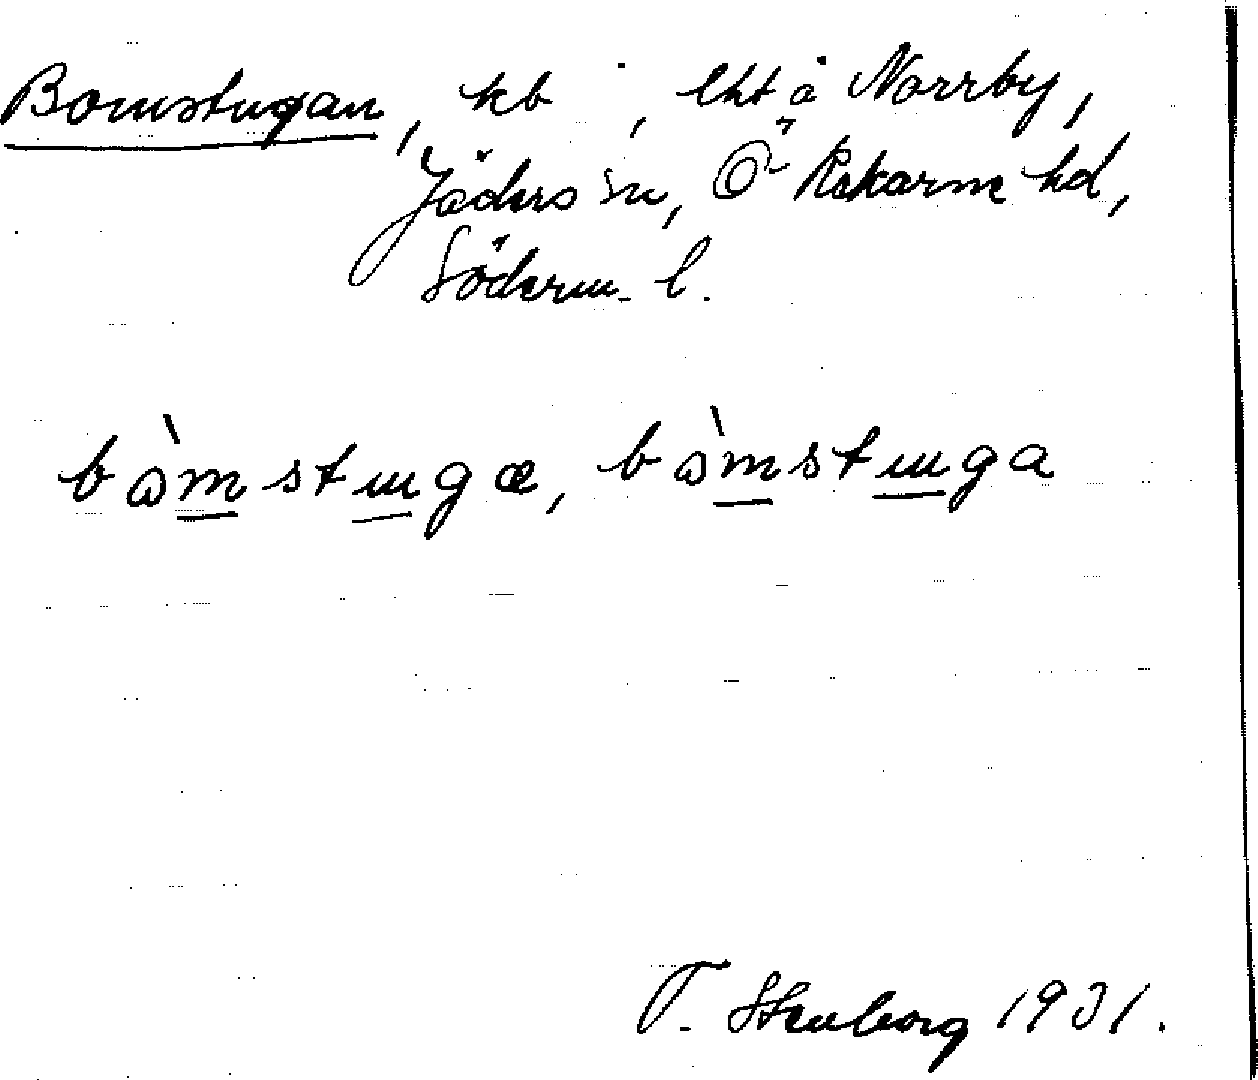 Bomstugan, kb , lht å Norrby,
Jäders sn, Ö Rekarne hd,
Söderm. l.
bòmstugœ, bòmstuga
T. Stenborg 1931.